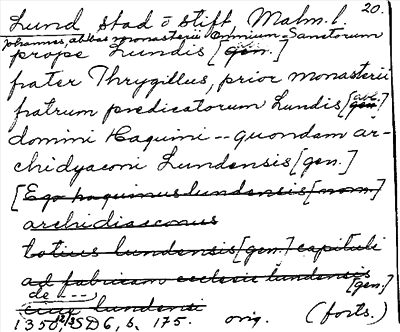 Lund stad o stift, Malm. l. 20.
Johannes, abbas monasterii omnium Sanctorum
prope Lundis [gen.]
frater Thrygillus, prior monasterii
fratrum predicatorum Lundis [abl. gen.]
domini Haquini -- quondam ar-
chidyaconi Lundensis [gen.]
[Ego haquinus lundensis [nom.]
archidiaconus
totius lundensis [gen.] capituli
ad fabricam ecclesie lundensis [gen.]
de ---,
lundensi
1350 12/3 SD 6, s. 175. orig. (forts.)